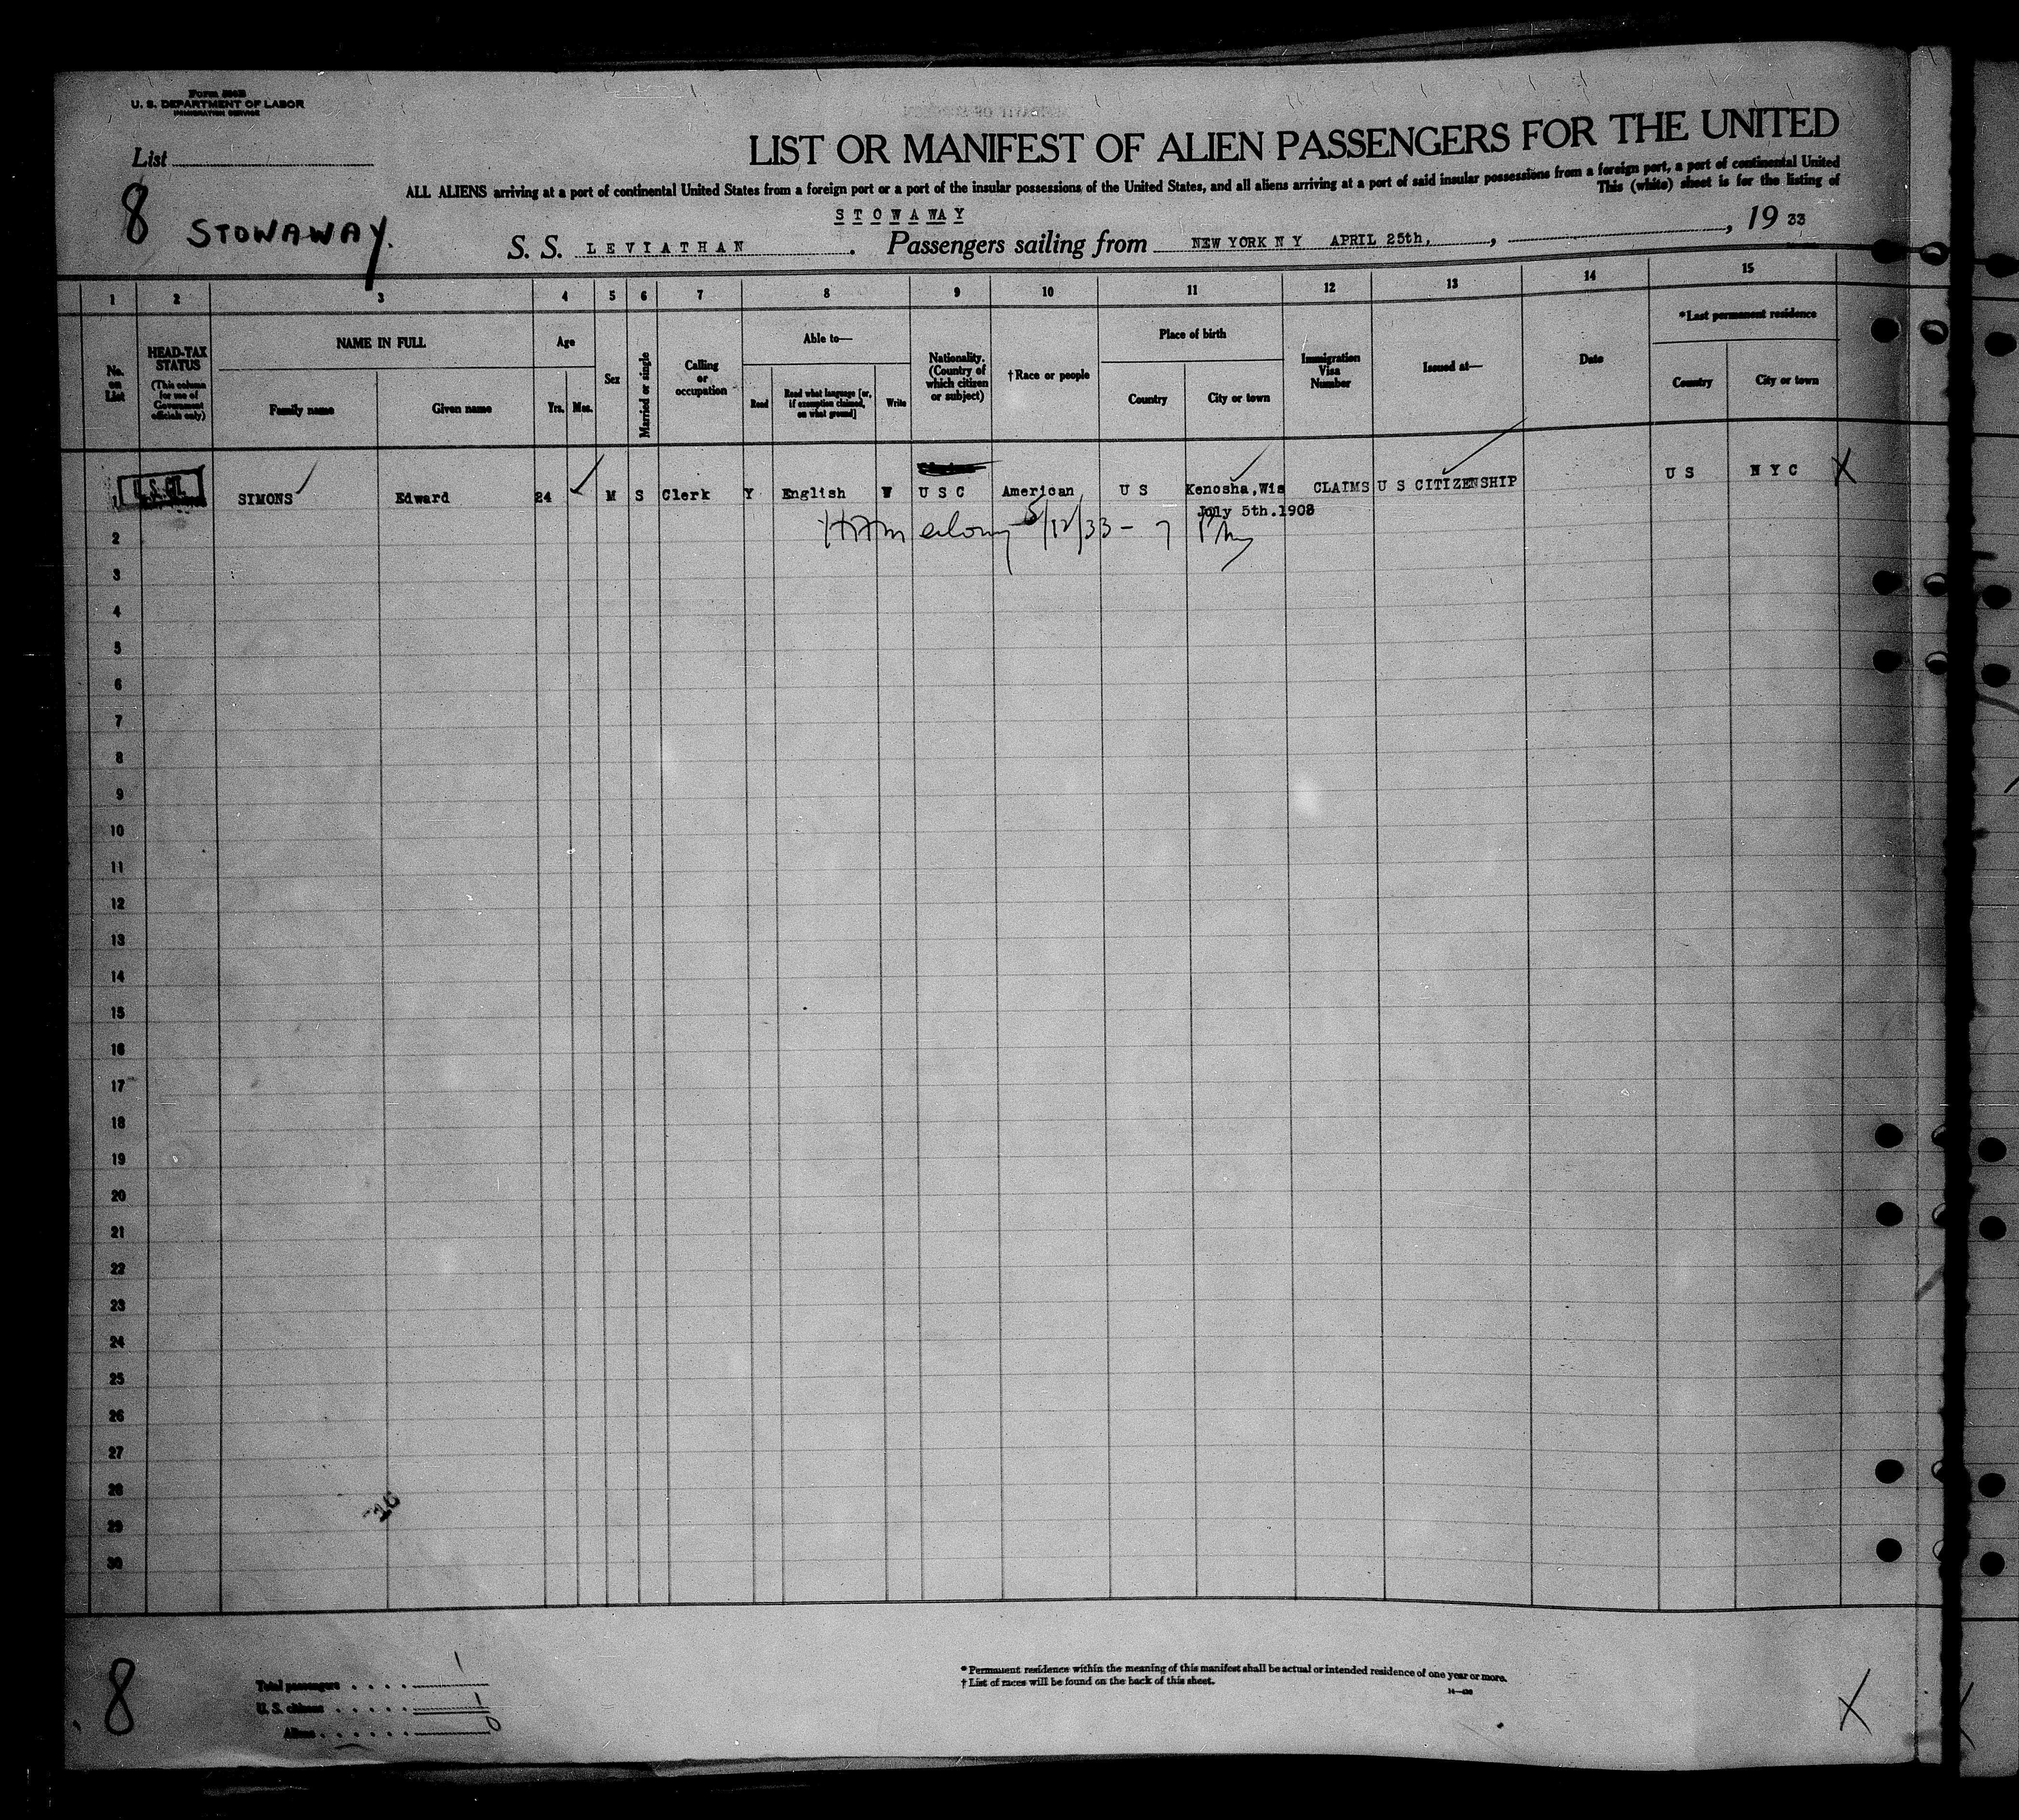 Form 500B
U. S. DEPARTMENT OF LABOR
IMMIGRATION SERVICE
List
8 STOWAWAY.
LIST OR MANIFEST OF ALIEN PASSENGERS FOR THE UNITED
ALL ALIENS arriving at a port of continental United States from a foreign port or a port of the insular possessions of the United States, and all aliens arriving at a port of said insular possessions from a foreign port, a port of continental United
This (white) sheet is for the listing of
STOWAWAY
S. S. LEVIATHAN. Passengers sailing from NEW YORK N Y APRIL 25th, , , 19 33
1 2 3 4 5 6 7 8 9 10 11 12 13 14 15
No. on List
HEAD-TAX STATUS
(This column for use of Government officials only)
NAME IN FULL
Family name
Given name
Age
Yrs. Mos.
Sex
Married or single
Calling or occupation
Able to—
Read
Read what language [or, if exemption claimed, on what ground]
Write
Nationality. (Country of which citizen or subject)
†Race or people
Place of birth
Country
City or town
Immigration Visa Number
Issued at—
Date
*Last permanent residence
Country
City or town
1 U.S. CIT. SIMONS Edward 24 M S Clerk Y English W U S C American U S Kenosha, Wis CLAIMS U S CITIZENSHIP U S N Y C X
July 5th. 1908
5/12/33 - 7
2
3
4
5
6
7
8
9
10
11
12
13
14
15
16
17
18
19
20
21
22
23
24
25
26
27
28
29
30
8
Total passengers . . . . 1
U. S. citizens . . . . . 1
Aliens . . . . . . 0
* Permanent residence within the meaning of this manifest shall be actual or intended residence of one year or more.
† List of races will be found on the back of this sheet.
X